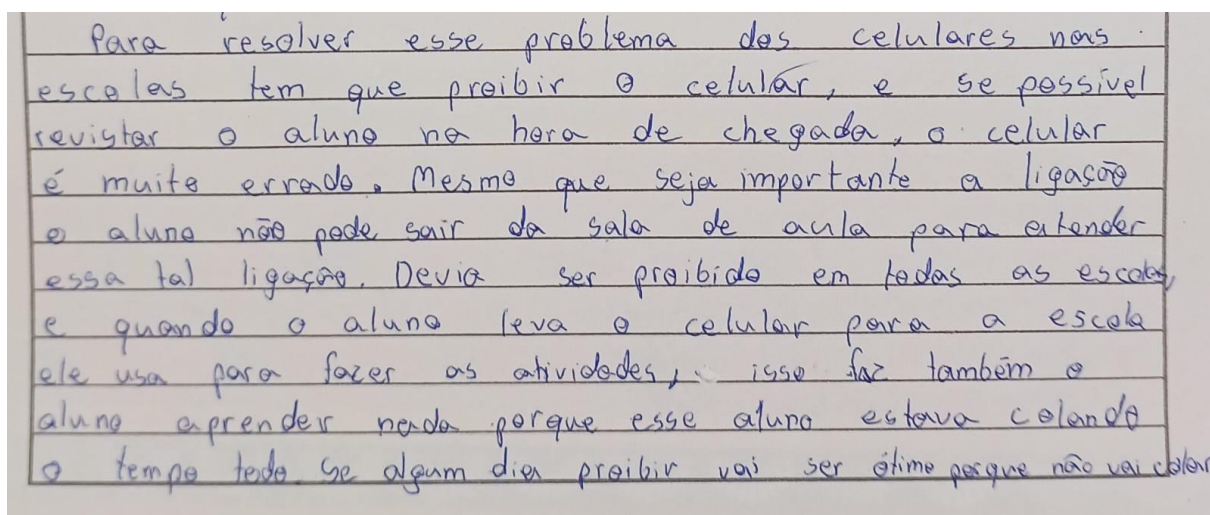 Para resolver esse problema dos celulares nas
escolas tem que proibir o celular, e se possível
revistar o aluno na hora de chegada, o celular
é muito errado. Mesmo que seja importante a ligação
o aluno não pode sair da sala de aula para atender
essa tal ligação. Devia ser proibido em todas as escolas,
e quando o aluno leva o celular para a escola
ele usa para fazer as atividades, isso faz também o
aluno aprender nada porque esse aluno estava colando
o tempo todo. Se algum dia proibir vai ser ótimo porque não vai colar